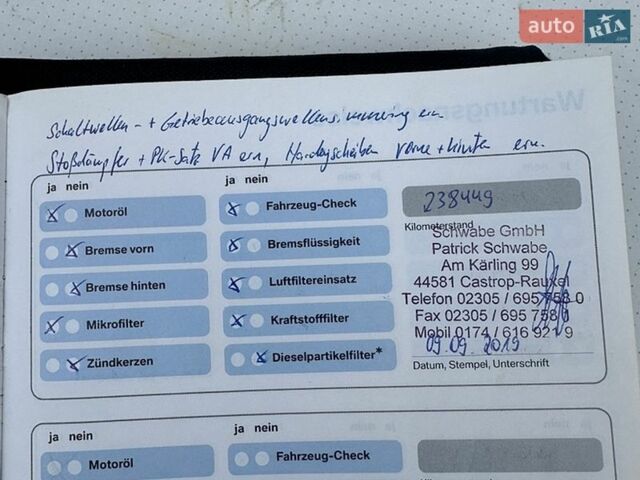 auto RIA .com
Wartungsnachweis
Schaltwellen - + Getriebeausgangswellensimmering ern.
Stoßdämpfer + PK-Satz VA ern, Hardyscheiben vorne + hinten ern.
ja nein
Motoröl
Bremse vorn
Bremse hinten
Mikrofilter
Zündkerzen
ja nein
Fahrzeug-Check
Bremsflüssigkeit
Luftfiltereinsatz
Kraftstofffilter
Dieselpartikelfilter*
238449
Kilometerstand
Schwabe GmbH
Patrick Schwabe
Am Kärling 99
44581 Castrop-Rauxel
Telefon 02305 / 695 758 0
Fax 02305 / 695 758
Mobil 0174 / 616 92 9
09.09.2019
Datum, Stempel, Unterschrift
ja nein
Motoröl
ja nein
Fahrzeug-Check